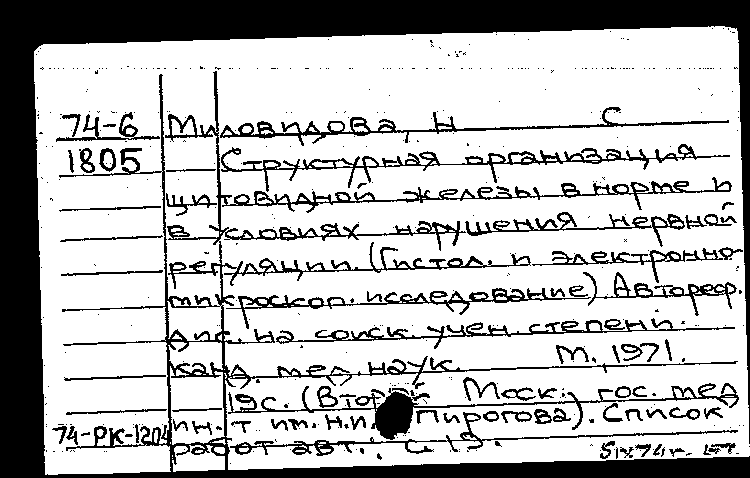 74-6 Миловидова, Н С
1805 Структурная организация
щитовидной железы в норме и
в условиях нарушения нервной
регуляции. (Гистол. и электронно-
микроскоп. исследование) Автореф.
дис. на соиск. учен. степени.
канд. мед. наук. М., 1971.
19с. (Второй Моск. гос. мед
ин-т им. Н.И. Пирогова). Список
74-РК-1204 работ авт.: с. 19.